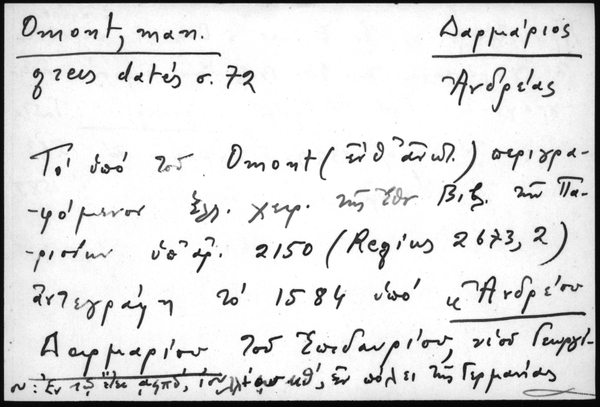 Omont, man.
Δαρμάριος
grecs datés σ. 72
Ἀνδρέας
Τὸ ὑπὸ τοῦ Omont (ἐνθ' ἀνωτ.) περιγρα-
-φόμενον ἑλλ. χειρ. τῆς Ἐθν. Βιβ. τῶν Πα-
-ρισίων ὑπ' ἀρ. 2150 (Regius 2673, 2)
ἀντεγράφη τὸ 1584 ὑπὸ Ἀνδρέου
Δαρμαρίου τοῦ Ἐπιδαυρίου, υἱοῦ Γεωργί-
ου: Ἐν τῷ ἔτει αφπδ, ἐν πόλει τῆς Γερμανίας